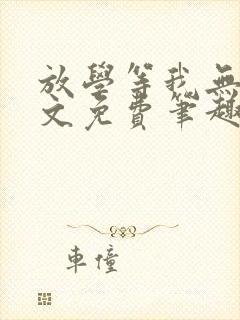 放學等我無
文免費筆趣
車僮